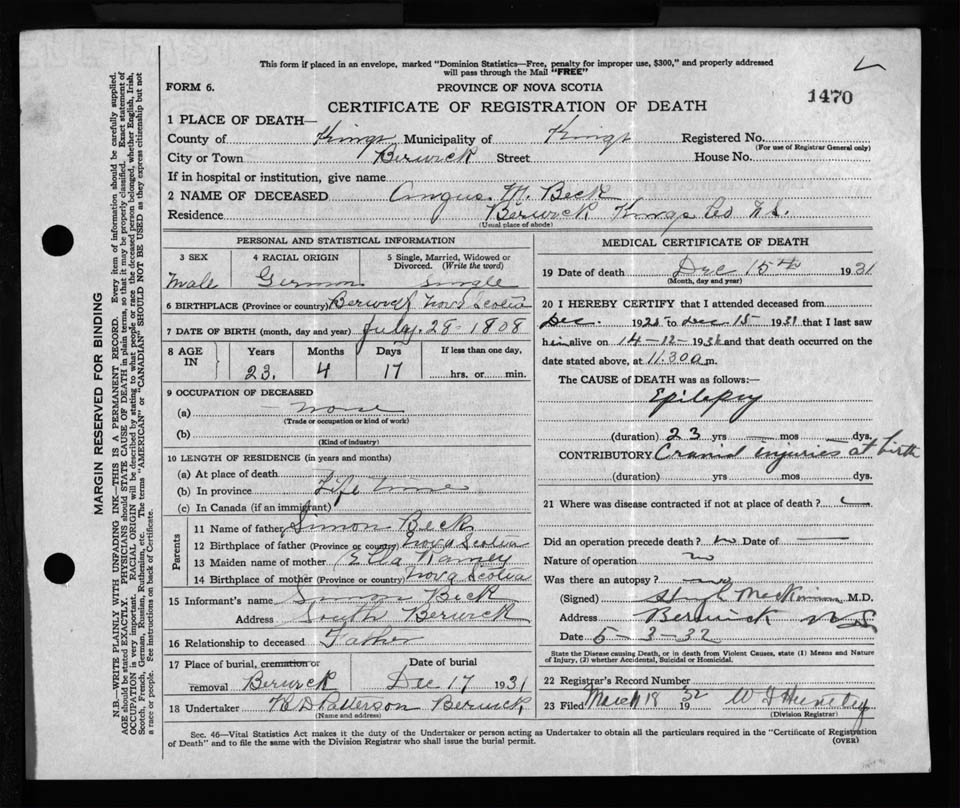 This form if placed in an envelope, marked "Dominion Statistics—Free, penalty for improper use, $300," and properly addressed
will pass through the Mail "FREE"
FORM 6.
PROVINCE OF NOVA SCOTIA
1470
CERTIFICATE OF REGISTRATION OF DEATH
1 PLACE OF DEATH—
County of Kings Municipality of Kings Registered No.
(For use of Registrar General only)
City or Town Berwick Street House No.
If in hospital or institution, give name
2 NAME OF DECEASED Angus M. Beck
Residence Berwick Kings Co N.S.
(Usual place of abode)
PERSONAL AND STATISTICAL INFORMATION
3 SEX
Male
4 RACIAL ORIGIN
German
5 Single, Married, Widowed or
Divorced. (Write the word)
Single
6 BIRTHPLACE (Province or country) Berwick Nova Scotia
7 DATE OF BIRTH (month, day and year) July 28-1808
8 AGE IN
Years Months Days If less than one day,
23. 4 17 hrs. or min.
9 OCCUPATION OF DECEASED
(a) None
(Trade or occupation or kind of work)
(b)
(Kind of industry)
10 LENGTH OF RESIDENCE (in years and months)
(a) At place of death
(b) In province Life time
(c) In Canada (if an immigrant)
Parents
11 Name of father Simon Beck
12 Birthplace of father (Province or country) Nova Scotia
13 Maiden name of mother Ella Ramey
14 Birthplace of mother (Province or country) Nova Scotia
15 Informant's name Simon Beck
Address South Berwick
16 Relationship to deceased Father
17 Place of burial, cremation or Date of burial
removal Berwick Dec 17 1931
18 Undertaker Patterson Berwick
(Name and address)
MEDICAL CERTIFICATE OF DEATH
19 Date of death Dec 15th 1931
(Month, day and year)
20 I HEREBY CERTIFY that I attended deceased from
Dec. 1925 to Dec 15 1931 that I last saw
him alive on 14-12-1931 and that death occurred on the
date stated above, at 11.30 a.m.
The CAUSE OF DEATH was as follows:—
Epilepsy
(duration) 23 yrs — mos dys.
CONTRIBUTORY Cranial injuries at birth
(duration) yrs mos dys.
21 Where was disease contracted if not at place of death?
Did an operation precede death? no Date of —
Nature of operation no
Was there an autopsy? no
(Signed) M.D.
Address Berwick N.S
Date 5-3-32
State the Disease causing Death, or in death from Violent Causes, state (1) Means and
Nature of Injury, (2) whether Accidental, Suicidal or Homicidal.
22 Registrar's Record Number
23 Filed March 18 1932
(Division Registrar)
Sec. 46—Vital Statistics Act makes it the duty of the Undertaker or person acting as Undertaker to obtain all the particulars required in the "Certificate of Registration
of Death" and to file the same with the Division Registrar who shall issue the burial permit. (OVER)
MARGIN RESERVED FOR BINDING
N.B.—WRITE PLAINLY WITH UNFADING INK—THIS IS A PERMANENT RECORD. Every item of information should be carefully supplied.
AGE should be stated EXACTLY. PHYSICIANS should STATE CAUSE OF DEATH in plain terms, so that it may be properly classified. Exact statement of
OCCUPATION is very important. RACIAL ORIGIN will be described by stating to what people or race the deceased person belonged, whether English, Irish,
Scotch, French, German, Russian, Ruthenian, etc. The terms "AMERICAN" or "CANADIAN" SHOULD NOT BE USED as they express citizenship but not
a race or people. See instructions on back of Certificate.